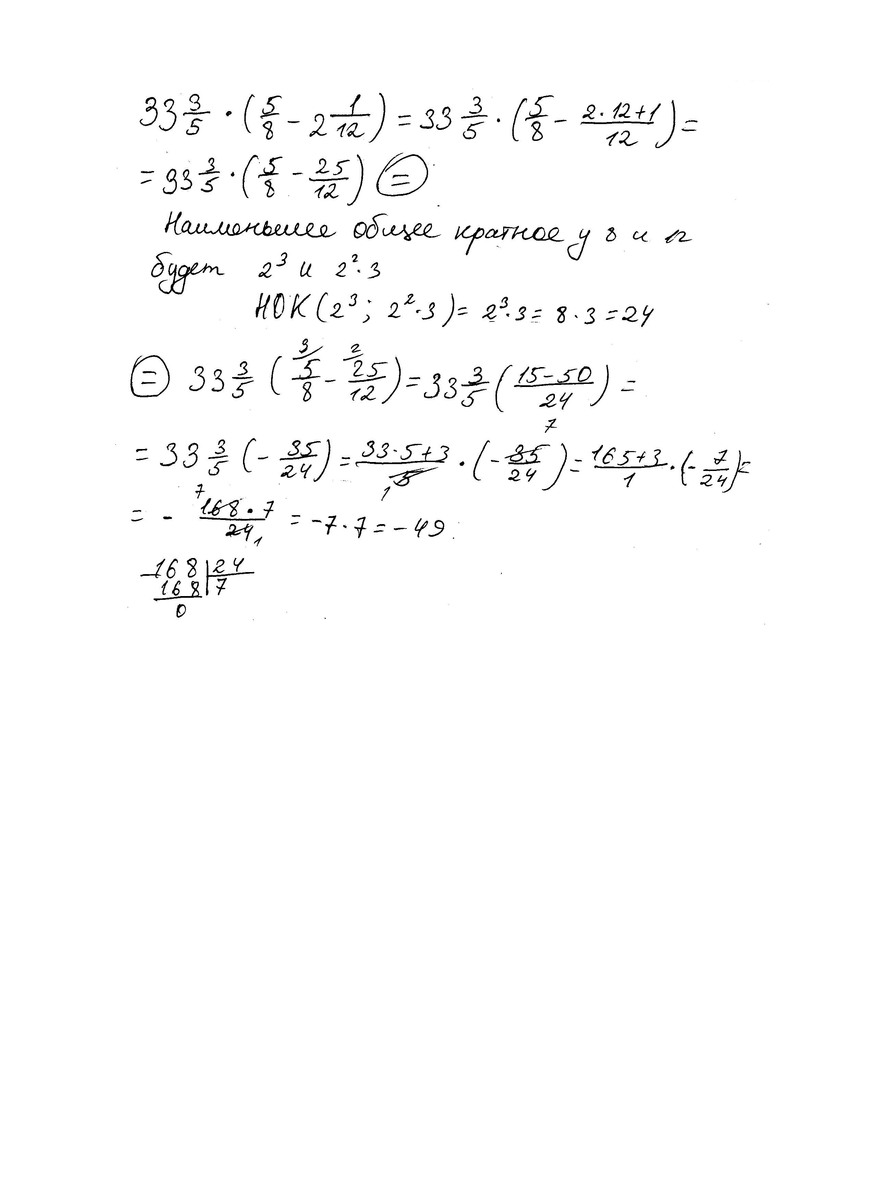 33 3/5 · (5/8 - 2 1/12) = 33 3/5 · (5/8 - (2·12+1)/12) =
= 33 3/5 · (5/8 - 25/12) =
Наименьшее общее кратное у 8 и 12
будет 2³ и 2²·3
НОК (2³; 2²·3) = 2³·3 = 8·3 = 24
= 33 3/5 (3/ 5/8 - 2/ 25/12) = 33 3/5 ((15-50)/24) =
= 33 3/5 (- 35/24) = (33·5+3)/5 1 · (- 35/24) 7 = (165+3)/1 · (- 7/24) =
= - 7 (168·7)/24 1 = -7·7 = -49
168 | 24
168 | 7
0